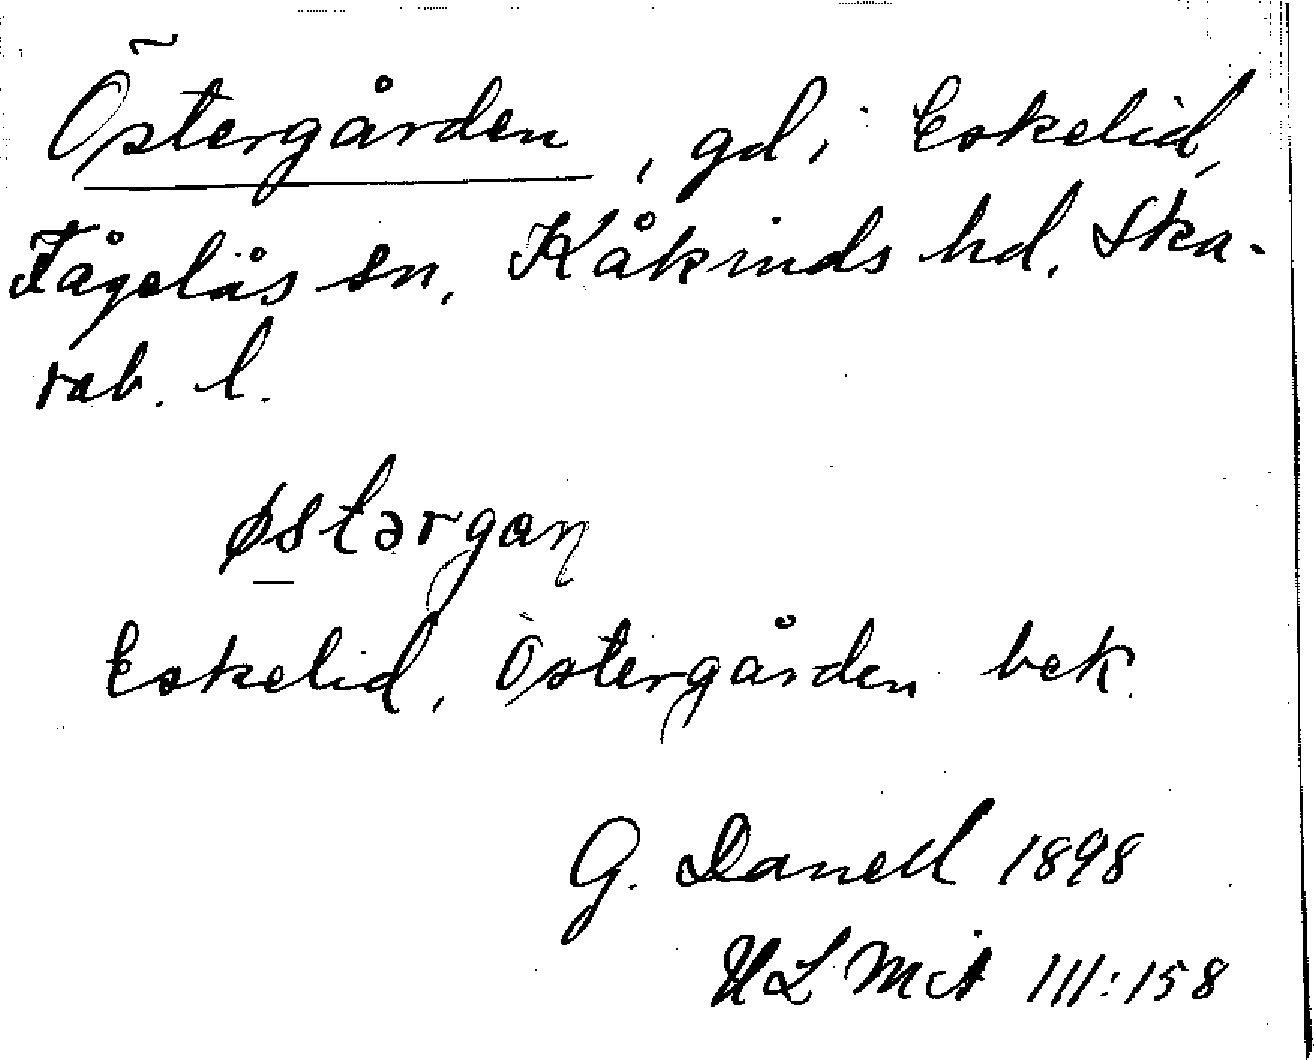 Östergården, gd i Eskelid,
Fågelås sn, Kåkinds hd, Ska-
rab. l.
østərgaꞃ
Eskelid, Östergården bek.
G. Danell 1898
ULMA III:158